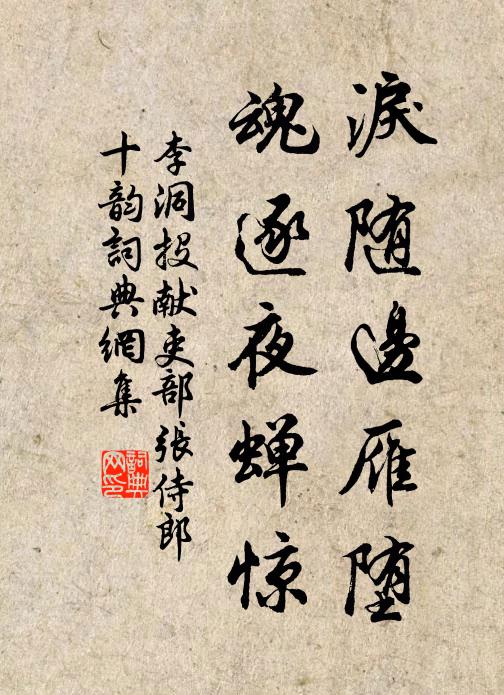 淚随邊雁堕
魂逐夜蝉惊
李洞投献吏部張侍郎
十韵詞典網集
詞典
网印